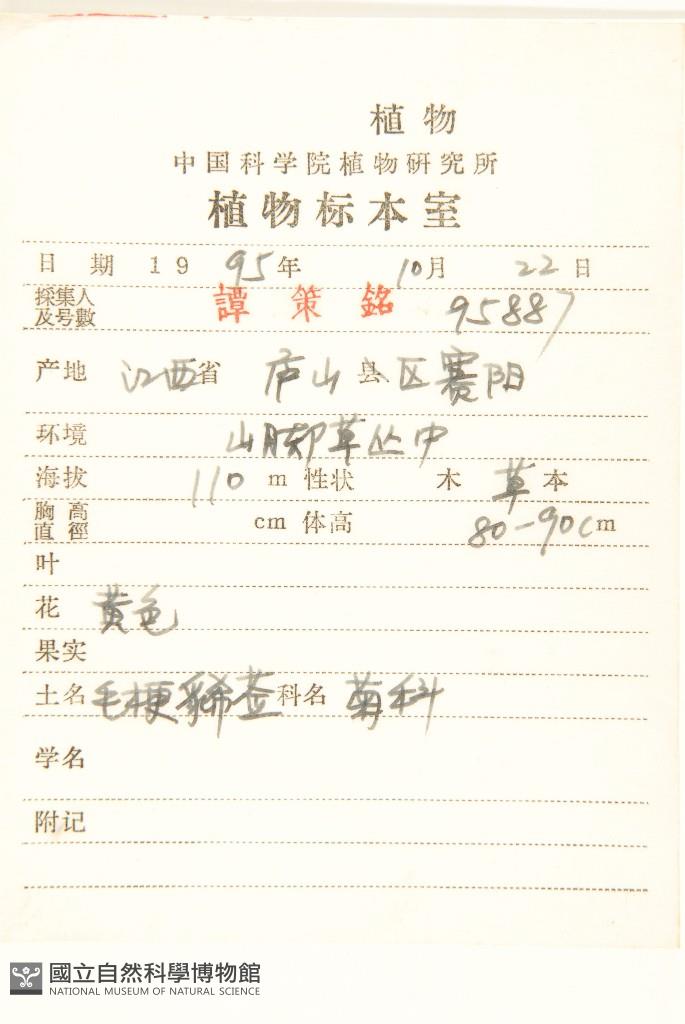 植物
中国科学院植物研究所
植物标本室
日期 19 95年 10月 22日
採集人及号數 譚策銘 95887
产地 江西省 庐山县、区赛阳
环境 山脚草丛中
海拔 110 m 性状 木 草本
胸高直徑 cm 体高 80-90cm
叶
花 黄色
果实
土名 毛梗豨莶 科名 菊科
学名
附记
國立自然科學博物館
NATIONAL MUSEUM OF NATURAL SCIENCE